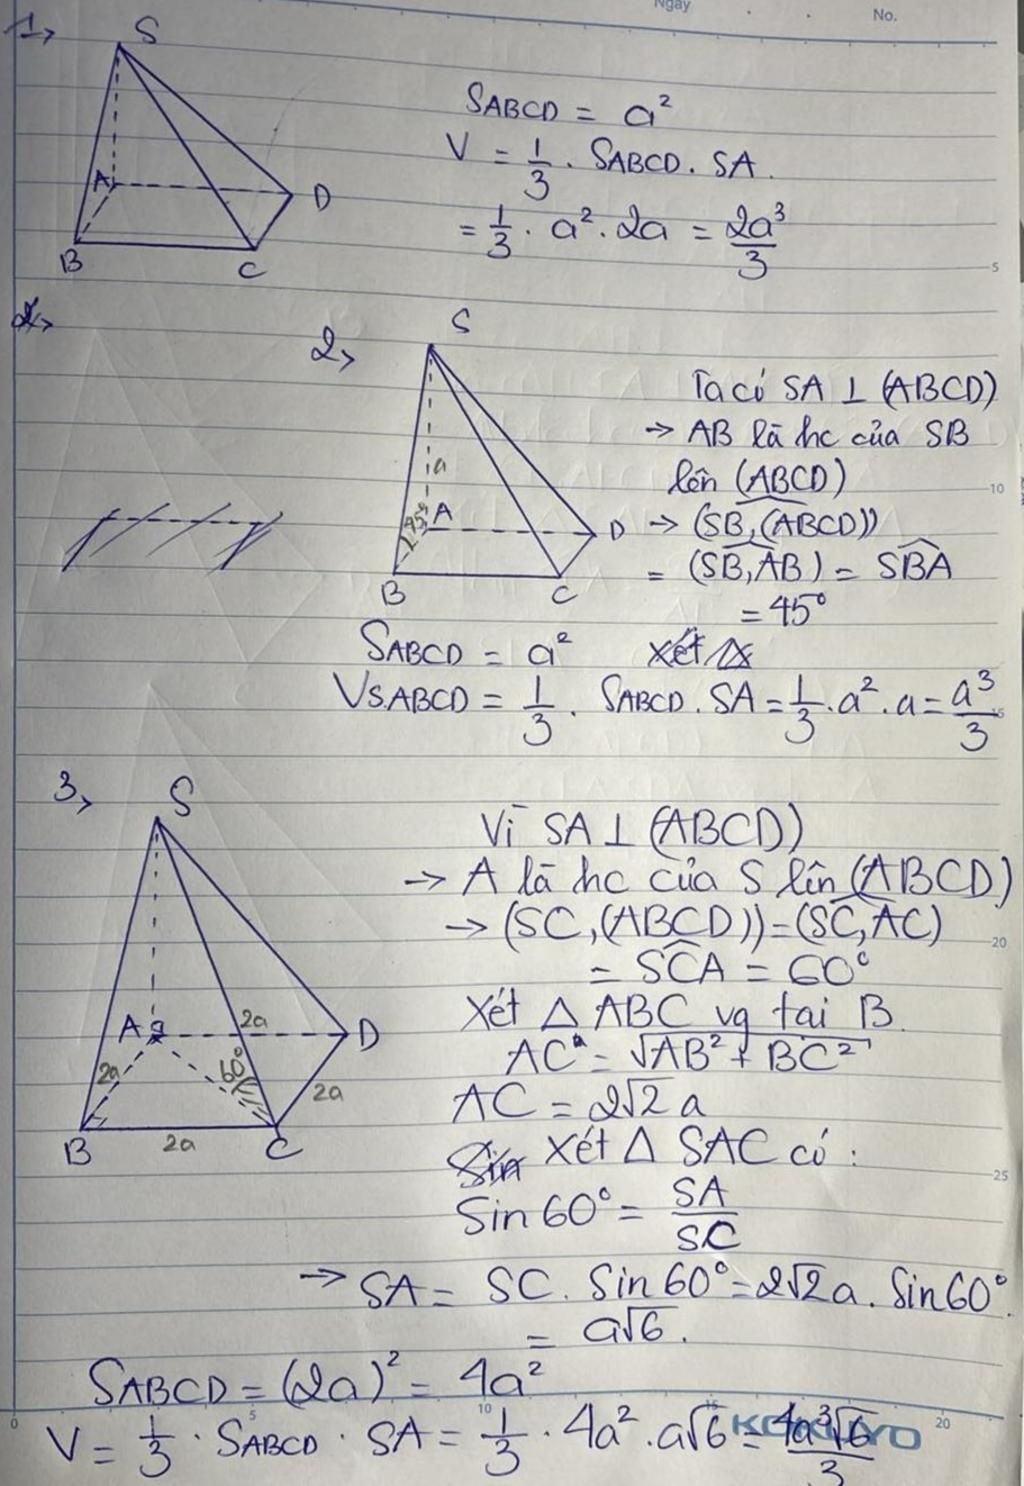 Ngày
No.
1,
S
A
B
C
D
S_ABCD = a²
V = 1/3 . S_ABCD . SA.
= 1/3 . a² . 2a = 2a³/3
5
2,
2,
S
a
A
45°
B
C
D
Ta có SA ⊥ (ABCD)
→ AB là hc của SB
lên (ABCD)
10
→ (SB,(ABCD))
= (SB,AB) = SBA
= 45°
S_ABCD = a² xét Δ
V_S.ABCD = 1/3 . S_ABCD . SA = 1/3 . a² . a = a³/3
15
3,
S
A
2a
D
2a
60°
2a
B
2a
C
Vì SA ⊥ (ABCD)
→ A là hc của S lên (ABCD)
→ (SC,(ABCD)) = (SC,AC)
20
= SCA = 60°
Xét Δ ABC vg tại B
AC = √AB² + BC²
AC = 2√2 a
Sin Xét Δ SAC có :
25
Sin 60° = SA/SC
→ SA = SC . Sin 60° = 2√2a . Sin 60°
= a√6.
S_ABCD = (2a)² = 4a²
0 5 10 15 20
KOKUYO
V = 1/3 . S_ABCD . SA = 1/3 . 4a² . a√6 = 4a³√6/3